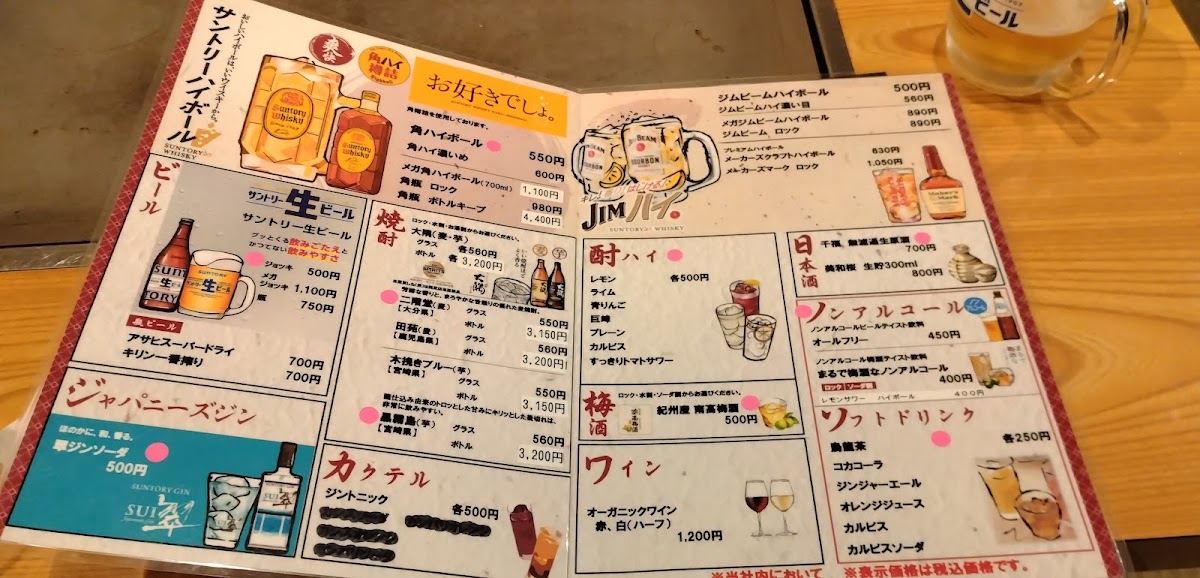 おいしいハイボールは、いいウイスキーから。
サントリーハイボール
SUNTORY WHISKY
爽快
角ハイ
樽詰
Suntory
Whisky
お好きでしょ。
角樽詰を使用しております。
角ハイボール 550円
角ハイ濃いめ 600円
メガ角ハイボール(700ml) 1,100円
角瓶 ロック 980円
角瓶 ボトルキープ 4,400円
ビール
サントリー生ビール
サントリー生ビール
グッとくる飲みごたえと
かつてない飲みやすさ
ジョッキ 500円
メガ
ジョッキ 1,100円
瓶 750円
瓶ビール
アサヒスーパードライ 700円
キリン一番搾り 700円
ジャパニーズジン
ほのかに、和、香る。
翠ジンソーダ
500円
SUNTORY GIN
SUI 翠
焼酎
ロック・水割・お湯割からお選びください。
大隅(麦・芋)
グラス 各560円
ボトル 各3,200円
二階堂(麦)
[大分県]
グラス 550円
ボトル 3,150円
田苑(麦)
[鹿児島県]
グラス 560円
ボトル 3,200円
木挽きブルー(芋)
[宮崎県]
グラス 550円
ボトル 3,150円
非常に飲みやすい。
黒霧島(芋)
[宮崎県]
グラス 560円
ボトル 3,200円
カクテル
ジントニック
各500円
JIM BEAM
BOURBON
JIMハイ。
SUNTORY WHISKY
ジムビームハイボール 500円
ジムビームハイ濃い目 560円
メガジムビームハイボール 890円
ジムビーム ロック 890円
プレミアムハイボール
メーカーズクラフトハイボール 630円
メーカーズマーク ロック 1,050円
Maker's
Mark
酎ハイ
レモン 各500円
ライム
青りんご
巨峰
プレーン
カルピス
すっきりトマトサワー
梅酒
ロック・水割・ソーダ割からお選びください。
紀州産 南高梅酒
500円
ワイン
オーガニックワイン
赤、白(ハーフ)
1,200円
日本酒
千福 無濾過生原酒
700円
美和桜 生貯300ml
800円
ノンアルコール
ノンアルコールビールテイスト飲料
オールフリー 450円
ノンアルコール梅酒テイスト飲料
まるで梅酒なノンアルコール
ロック ソーダ割 400円
レモンサワー ハイボール 400円
ソフトドリンク
烏龍茶 各250円
コカコーラ
ジンジャーエール
オレンジジュース
カルピス
カルピスソーダ
※当社内において
※表示価格は税込価格です。
ビール